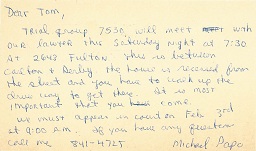 Dear Tom,
Trial group 7530, will meet with
our lawyer this Saturday night at 7:30
At 2642 Fulton this is between
Carlton & Derby the house is recessed from
the street and you have to walk up the
drive way to get there. It is most
important that you come.
we must appear in court on Feb 3rd
at 9:00 Am. If you have any question
call me 841-4725 Michael Papo